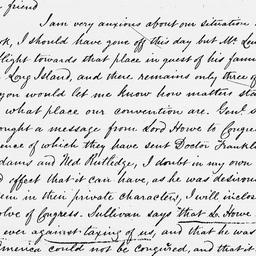 friend
I am very anxious about our situation
k, I should have gone off this day but Mr. Lew
flight towards that place in quest of his fam
Long Island, and there remains only three of
you would let me know how matters sta
what place our convention are. Genl. S
ought a message from Lord Howe to Congre
ence of which they have sent Doctor Frankli
dams and Ned Rutledge, I doubt in my own
d effect that it can have, as he was desirous
em in their private characters, I will inclos
olve of Congress. Sullivan says that L. Howe
ever against taxing of us, and that he was
merica could not be conquired, and that it